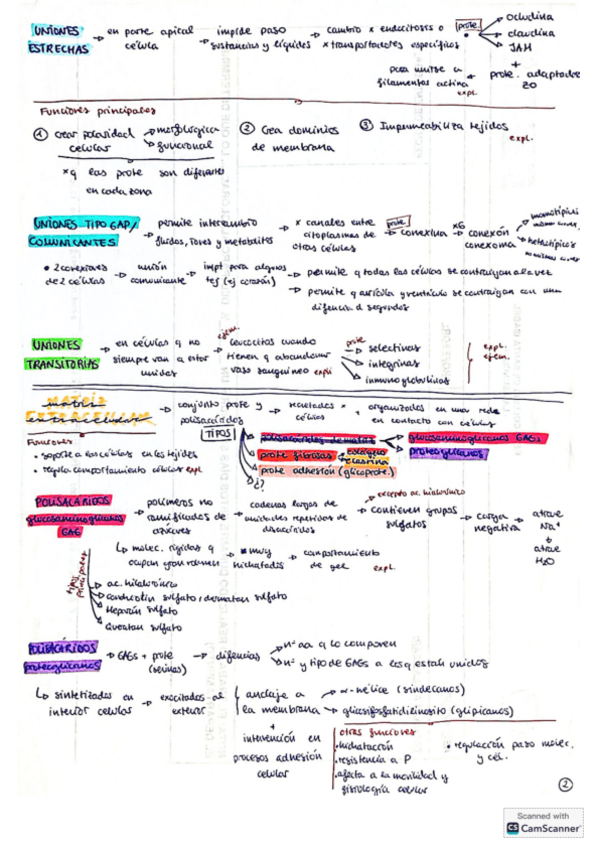 UNIONES ESTRECHAS → en parte apical célula → impide paso sustancias y líquidos → cambio x endocitosis o x transportadores específicos
prote. → ocludina
→ claudina
→ JAM
+
prote. adaptadas ZO
para unirse a filamentos actina
expl.
Funciones principales
① Crear polaridad celular → morfológica
→ funcional
xq las prote son diferentes en cada zona
② Crea dominios de membrana
③ Impermeabiliza tejidos
expl.
UNIONES TIPO GAP/ COMUNICANTES → permite intercambio fluidos, iones y metabolitos → x canales entre citoplasmas de otras células
prote → conexina x6 → conexón conexoma
→ homotípicos
→ heterotípicos
• 2 conexones de 2 células → unión comunicante → impt para algunos tej (ej corazón)
→ permite q todas las células se contraigan a la vez
→ permite q aurícula y ventrículo se contraigan con una diferencia d segundos
UNIONES TRANSITORIAS → en células q no siempre van a estar unidas → ejem. leucocitos cuando tienen q abandonar vaso sanguíneo expl
prote → selectinas
→ integrinas
→ inmunoglobulinas
expl. ejem.
MATRIZ EXTRACELULAR → conjunto prote y polisacáridos → secretados x células → organizados en una red en contacto con células
Funciones
• soporte a las células en los tejidos
• regula comportamiento células expl
TIPOS
polisacáridos de matriz → glucosaminoglicanos GAGs
→ proteoglicanos
prote fibrosas → colágeno
→ elastina
prote adhesión (glicoprote.)
¿?
POLISACÁRIDOS glucosaminoglicanos GAG → polímeros no ramificados de azúcares → cadenas largas de unidades repetidas de disacáridos → contienen grupos sulfatos → carga negativa → atrae Na+ → atrae H2O
excepto ac. hialurónico
↳ molec. rígidas q ocupan gran volumen → muy hidratadas → comportamiento de gel expl.
tipos principales
→ ac. hialurónico
→ condroitín sulfato / dermatan sulfato
→ Heparán sulfato
→ Queratán sulfato
POLISACÁRIDOS proteoglicanos → GAGs + prote (serinas) → difencias → nº aa q lo componen
→ nº y tipo de GAGs a los q están unidos
↳ sintetizados en interior celular → exocitados al exterior
anclaje a la membrana → α-hélice (sindecanos)
→ glicosilfosfatidilinositol (glipicanos)
+
intervención en procesos adhesión celular
otras funciones
• hidratación
• resistencia a P
• afecta a la movilidad y fisiología celular
• regulación paso molec. y cél.
②
Scanned with
CS CamScanner